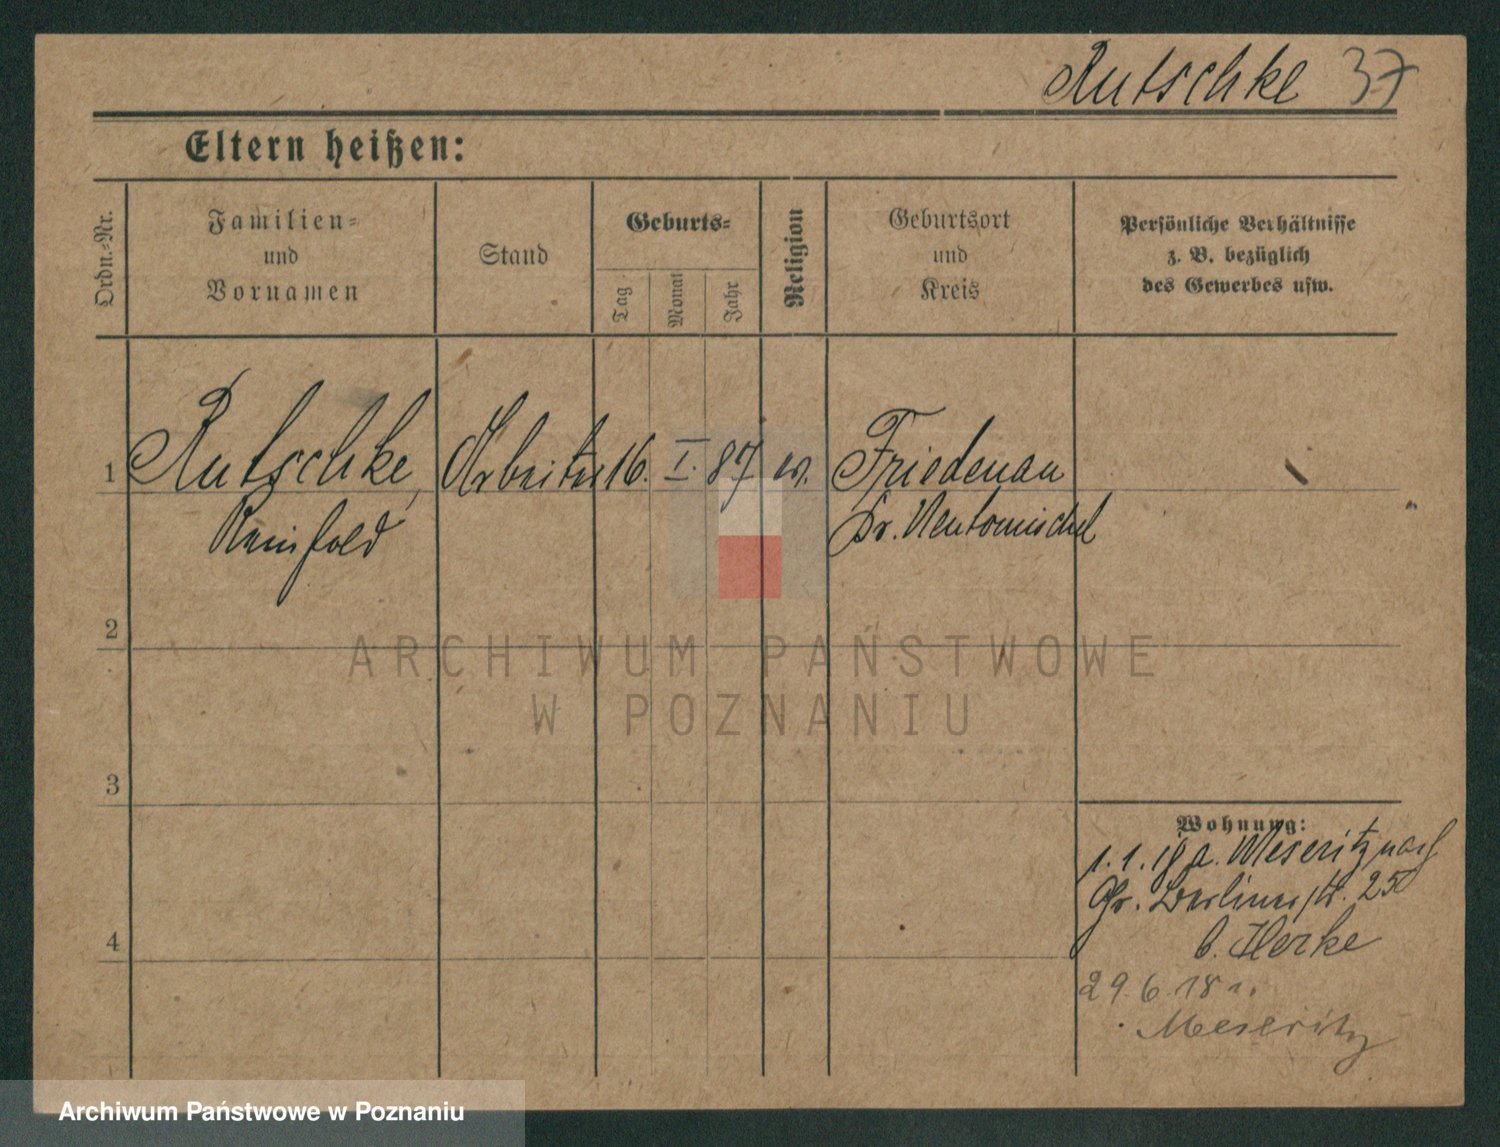 Rutschke 37
Eltern heißen:
Ordn.-Nr.
Familien-
und
Vornamen
Stand
Geburts-
Tag
Monat
Jahr
Religion
Geburtsort
und
Kreis
Persönliche Verhältnisse
z. B. bezüglich
des Gewerbes usw.
1 Rutschke, Arbeiter 16. I. 87 ev. Friedenau
Reinhold Kr. Neutomischel
2
ARCHIWUM PAŃSTWOWE
W POZNANIU
3
Wohnung:
1. 1. 18 a. Meseritz nach
Gr. Berlinerstr. 25
4
b. Herke
29. 6. 18 n.
Meseritz
Archiwum Państwowe w Poznaniu